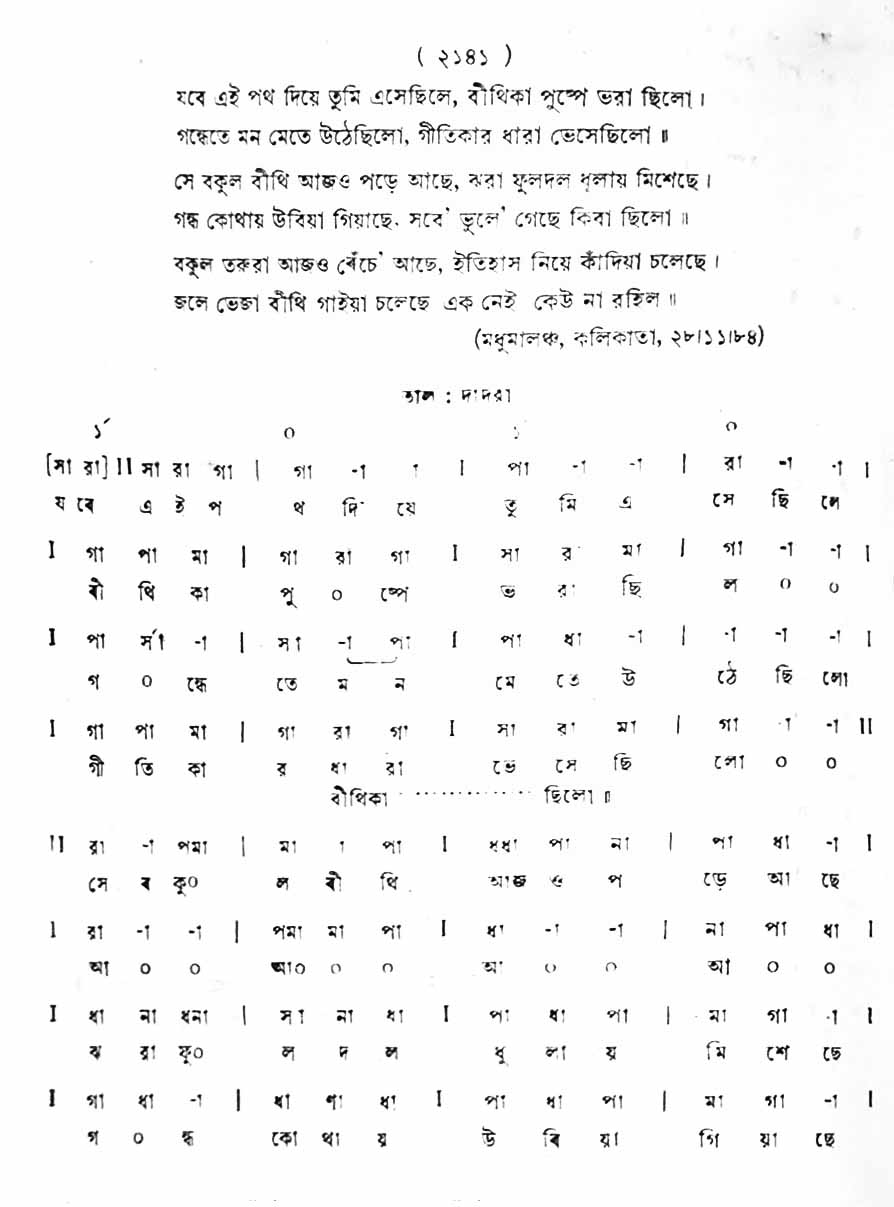 ( ২১৪১ )
যবে এই পথ দিয়ে তুমি এসেছিলে, বীথিকা পুষ্পে ভরা ছিলো।
গন্ধেতে মন মেতে উঠেছিলো, গীতিকার ধারা ভেসেছিলো॥
সে বকুল বীথি আজও পড়ে আছে, ঝরা ফুলদল ধূলায় মিশেছে।
গন্ধ কোথায় উবিয়া গিয়াছে, সবে' ভুলে' গেছে কিবা ছিলো॥
বকুল তরুরা আজও বেঁচে' আছে, ইতিহাস নিয়ে কাঁদিয়া চলেছে।
জলে ভেজা বীথি গাইয়া চলেছে এক নেই কেউ না রহিল॥
(মধুমালঞ্চ, কলিকাতা, ২৮।১১।৮৪)
তাল : দাদরা
১´ ০ ১ ০
[সা রা] II সা রা গা | গা -া া I পা -া -া | রা -া -া I
য বে এ ই প থ দি য়ে তু মি এ সে ছি লে
I গা পা মা | গা রা গা I সা রা মা | গা -া -া I
বী থি কা পু ০ ষ্পে ভ রা ছি ল ০ ০
I পা র্সা -া | সা -া পা I পা ধা -া | -া -া -া I
গ ০ ন্ধে তে ম ন মে তে উ ঠে ছি লো
I গা পা মা | গা রা গা I সা রা মা | গা -া -া II
গী তি কা র ধা রা ভে সে ছি লো ০ ০
বীথিকা ·············· ছিলো॥
II রা -া পমা | মা া পা I ধধা পা না | পা ধা -া I
সে ব কু০ ল বী থি আজ ও প ড়ে আ ছে
I রা -া -া | পমা মা পা I ধা -া -া | না পা ধা I
আ ০ ০ আ০ ০ ০ আ ০ ০ আ ০ ০
I ধা না ধনা | সা না ধা I পা ধা পা | মা গা -া I
ঝ রা ফু০ ল দ ল ধূ লা য় মি শে ছে
I গা ধা -া | ধা ণা ধা I পা ধা পা | মা গা -া I
গ ০ ন্ধ কো থা য় উ বি য়া গি য়া ছে